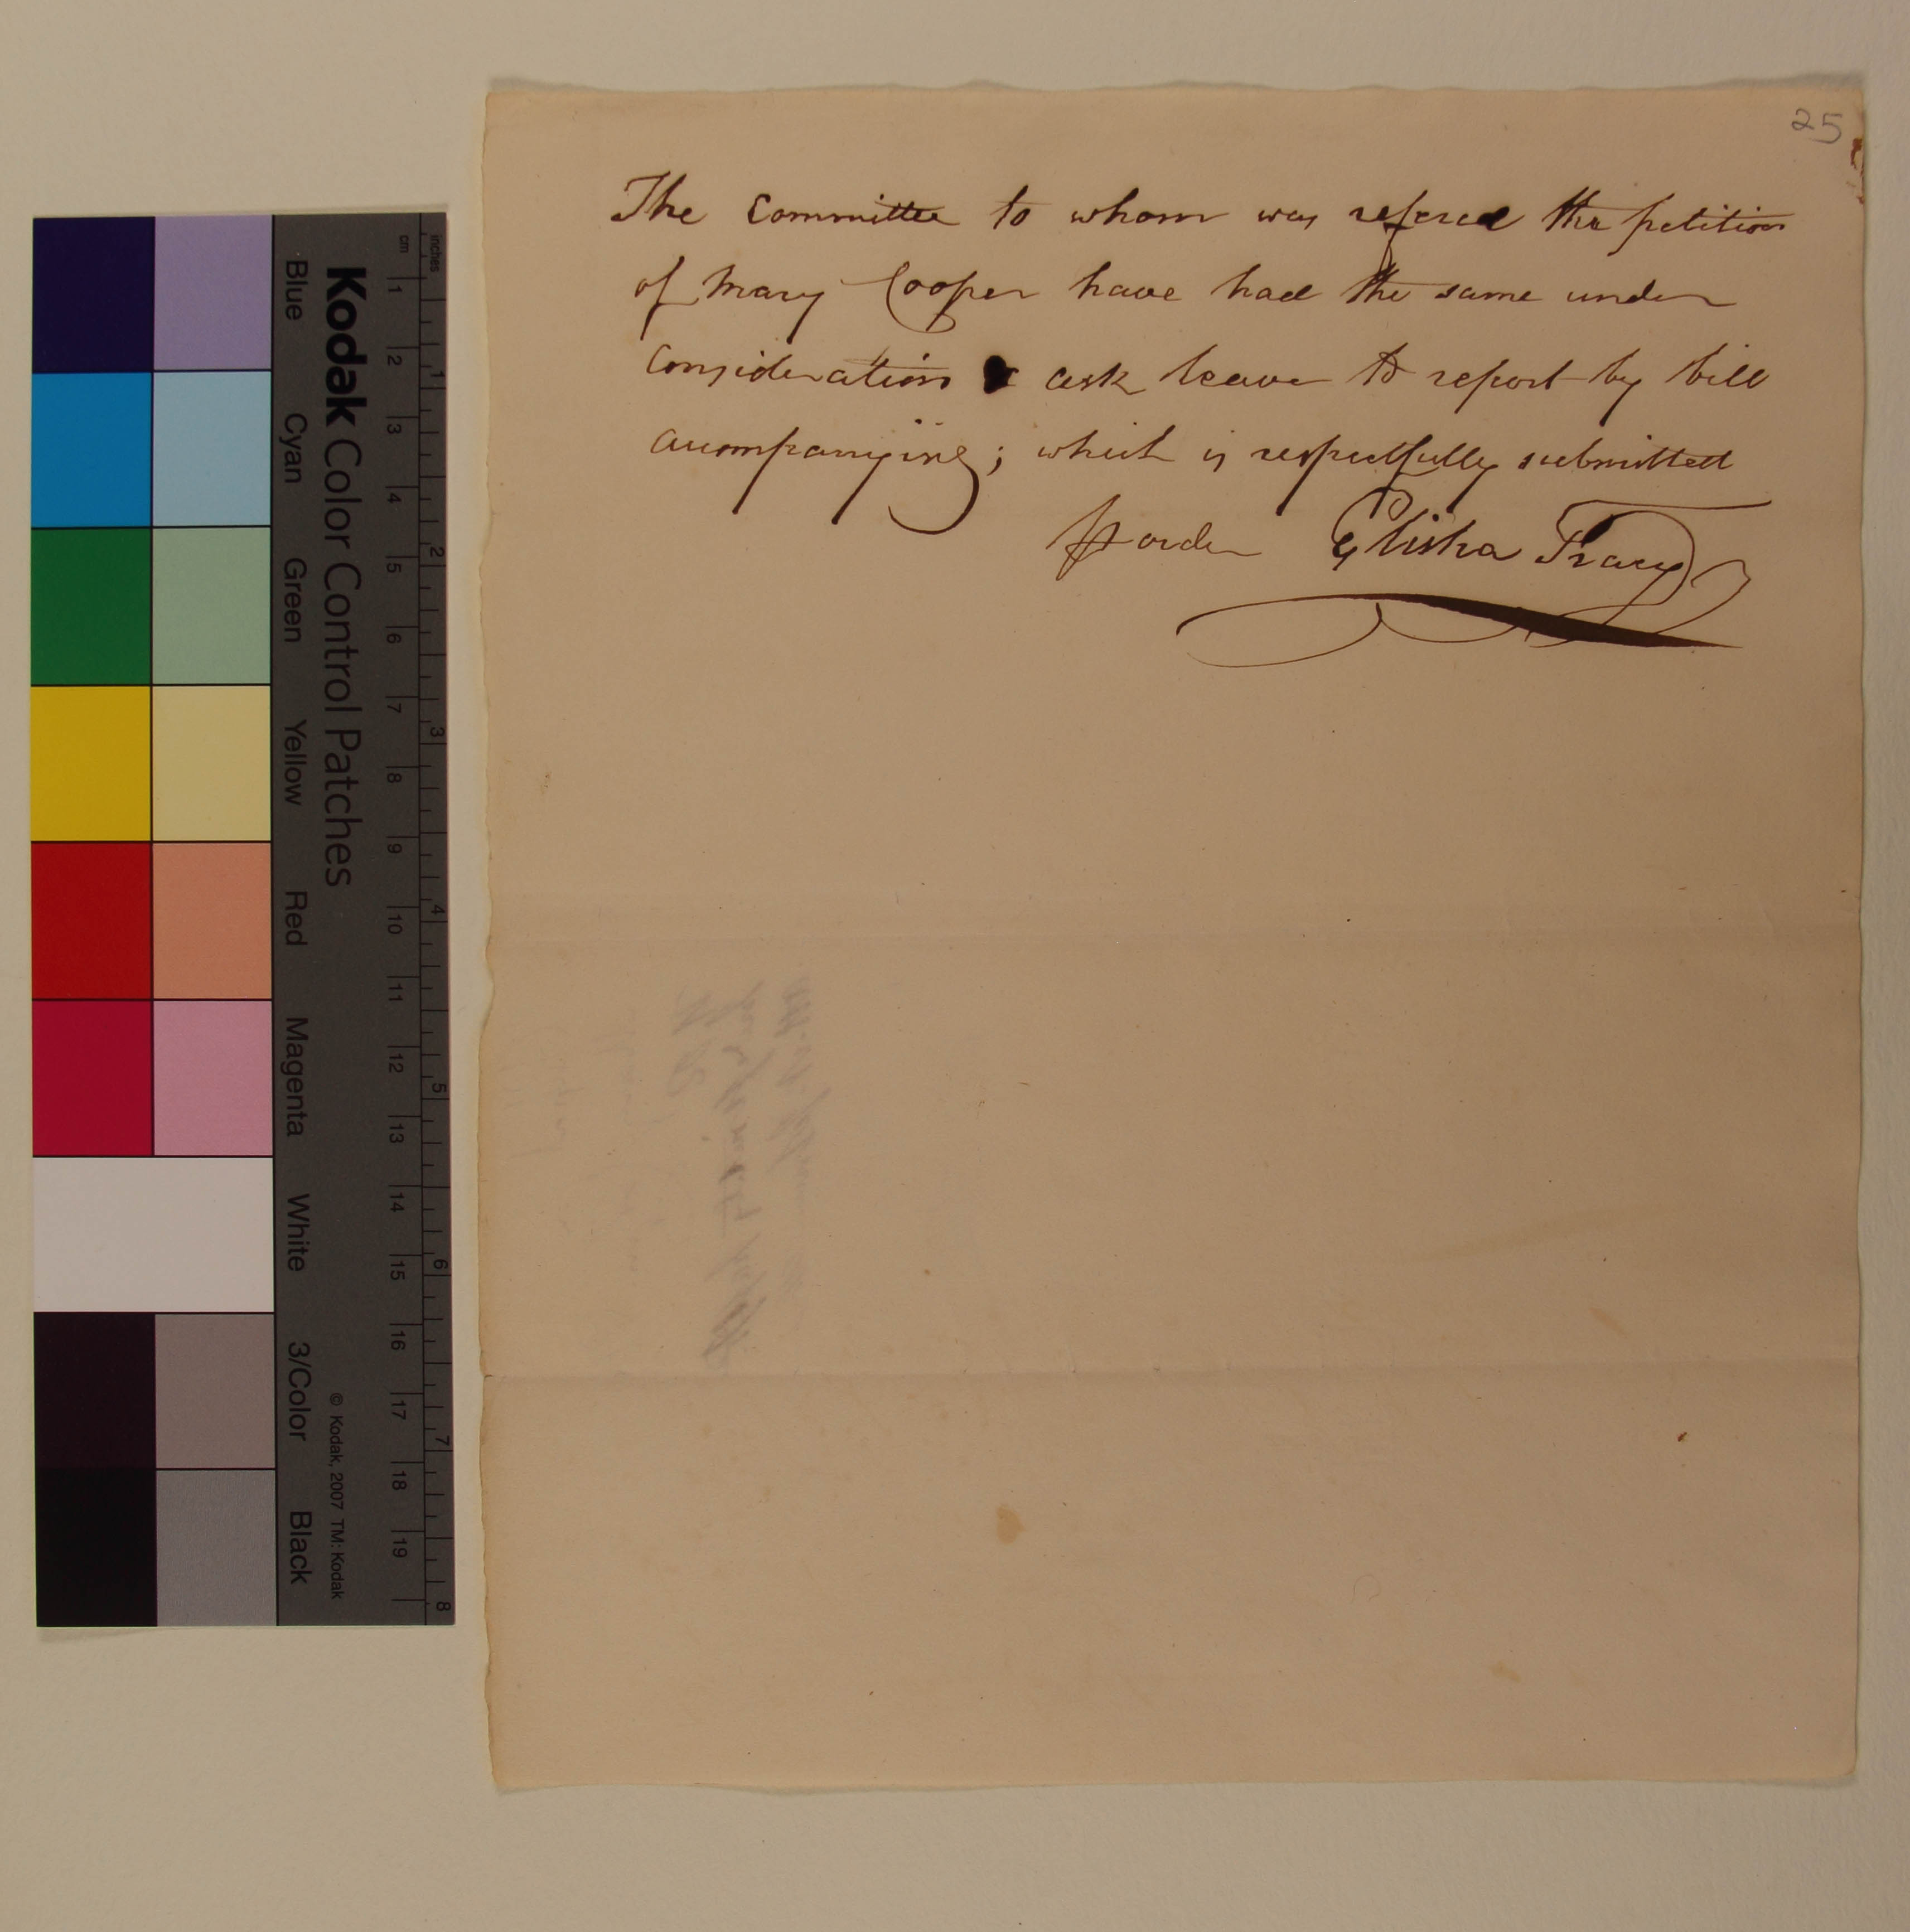 25
The Committee to whom was refered the petition
of Mary Cooper have had the same under
Consideration & ask leave to report by bill
accompanying; which is respectfully submitted
pr order Elisha Tracy
Kodak Color Control Patches
Blue Cyan Green Yellow Red Magenta White 3/Color Black
© Kodak, 2007 TM: Kodak
cm 1 2 3 4 5 6 7 8 9 10 11 12 13 14 15 16 17 18 19
inches 1 2 3 4 5 6 7 8